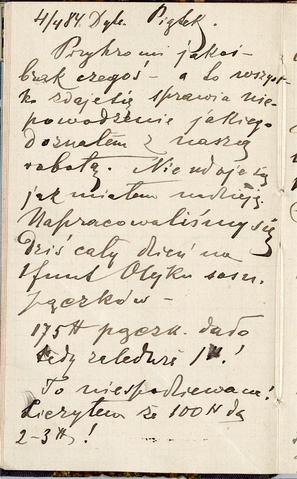 4/4 84. Dyle. Piątek.
Przykro mi jakoś
brak czegoś – a to wszyst-
ko zdaje się sprawia nie-
powodzenie jakiego
doznałem z naszą
robotą. Nie udaje się
jak miałem nadzieję.
Napracowaliśmy się
dziś cały dzień na
1funt Olejku sosn.
pączków –
175 ℔ pączk. dało
tedy zaledwie 1 ℔.!
To niespodziewane!
Liczyłem że 100 ℔ da
2–3 ℔!